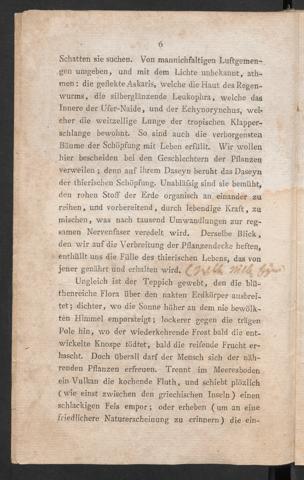 6
Schatten sie suchen. Von mannichfaltigen Luftgemen-
gen umgeben, und mit dem Lichte unbekannt, ath-
men: die geflekte Askaris, welche die Haut des Regen-
wurms, die silberglänzende Leukophra, welche das
Innere der Ufer-Naide, und der Echynorynchus, wel-
cher die weitzellige Lunge der tropischen Klapper-
schlange bewohnt. So sind auch die verborgensten
Bäume der Schöpfung mit Leben erfüllt. Wir wollen
hier bescheiden bei den Geschlechtern der Pflanzen
verweilen; denn auf ihrem Daseyn beruht das Daseyn
der thierischen Schöpfung. Unabläſsig sind sie bemüht,
den rohen Stoff der Erde organisch an einander zu
reihen, und vorbereitend, durch lebendige Kraft, zu
mischen, was nach tausend Umwandlungen zur reg-
samen Nervenfaser veredelt wird. Derselbe Blick,
den wir auf die Verbreitung der Pflanzendecke heften,
enthüllt uns die Fülle des thierischen Lebens, das von
jener genährt und erhalten wird.
Ungleich ist der Teppich gewebt, den die blü-
thenreiche Flora über den nakten Erdkörper ausbrei-
tet; dichter, wo die Sonne höher an dem nie bewölk-
ten Himmel emporsteigt; lockerer gegen die trägen
Pole hin, wo der wiederkehrende Frost bald die ent-
wickelte Knospe tödtet, bald die reifende Frucht er-
hascht. Doch überall darf der Mensch sich der näh-
renden Pflanzen erfreuen. Trennt im Meeresboden
ein Vulkan die kochende Fluth, und schiebt plözlich
(wie einst zwischen den griechischen Inseln) einen
schlackigen Fels empor; oder erheben (um an eine
friedlichere Naturerscheinung zu erinnern) die ein-